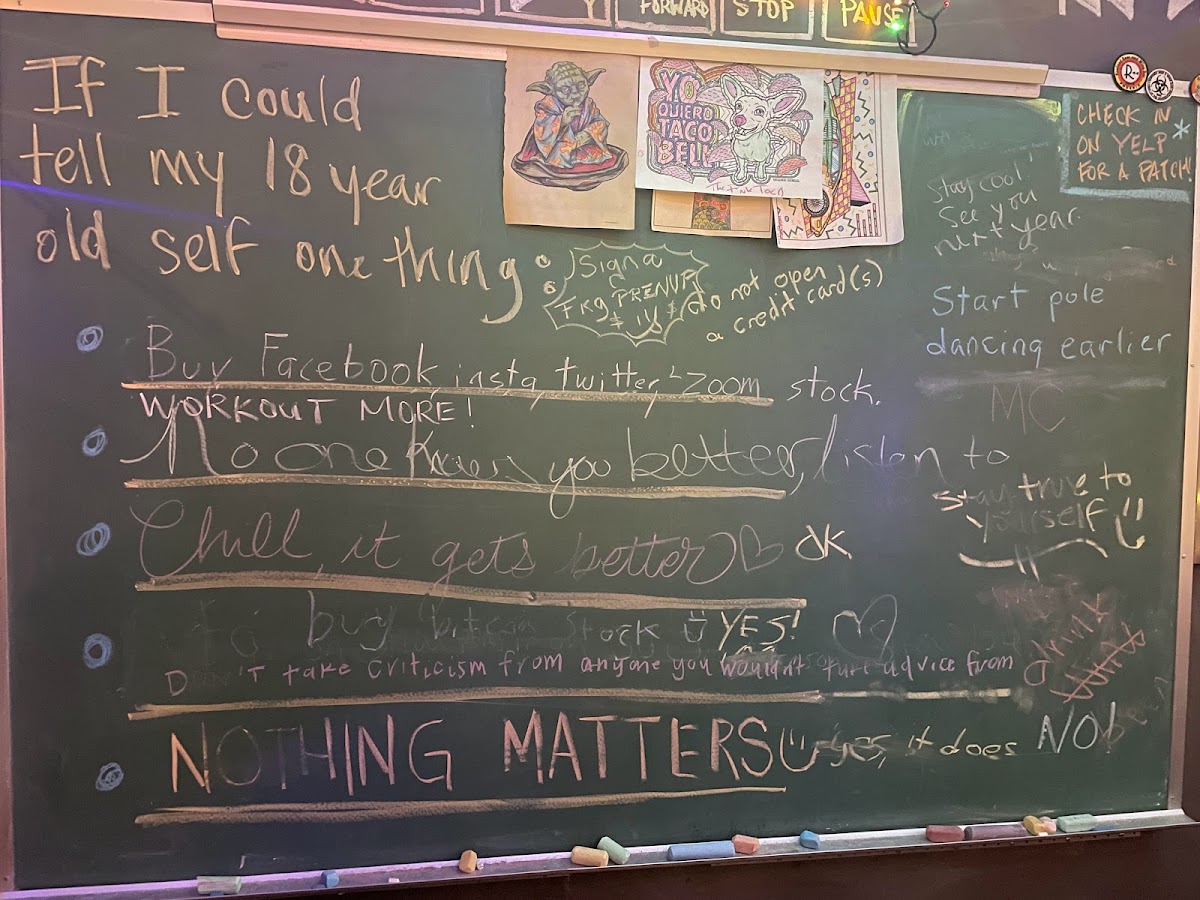 FORWARD
STOP
PAUSE
If I could
tell my 18 year
old self one thing:
YO
QUIERO
TACO
BELL
CHECK IN
ON YELP *
FOR A PATCH!
Stay cool
See you
next year
Sign a
FKG PRENUP
do not open
a credit card(s)
Start pole
dancing earlier
Buy Facebook, insta, twitter, Zoom stock.
WORKOUT MORE!
MC
No one knows you better, listen to
Stay true to
yourself
Chill, it gets better ♡ dK
buy bitcoin stock YES!
DON'T take criticism from anyone you wouldn't take advice from
drink
NOTHING MATTERS yes, it does NO!